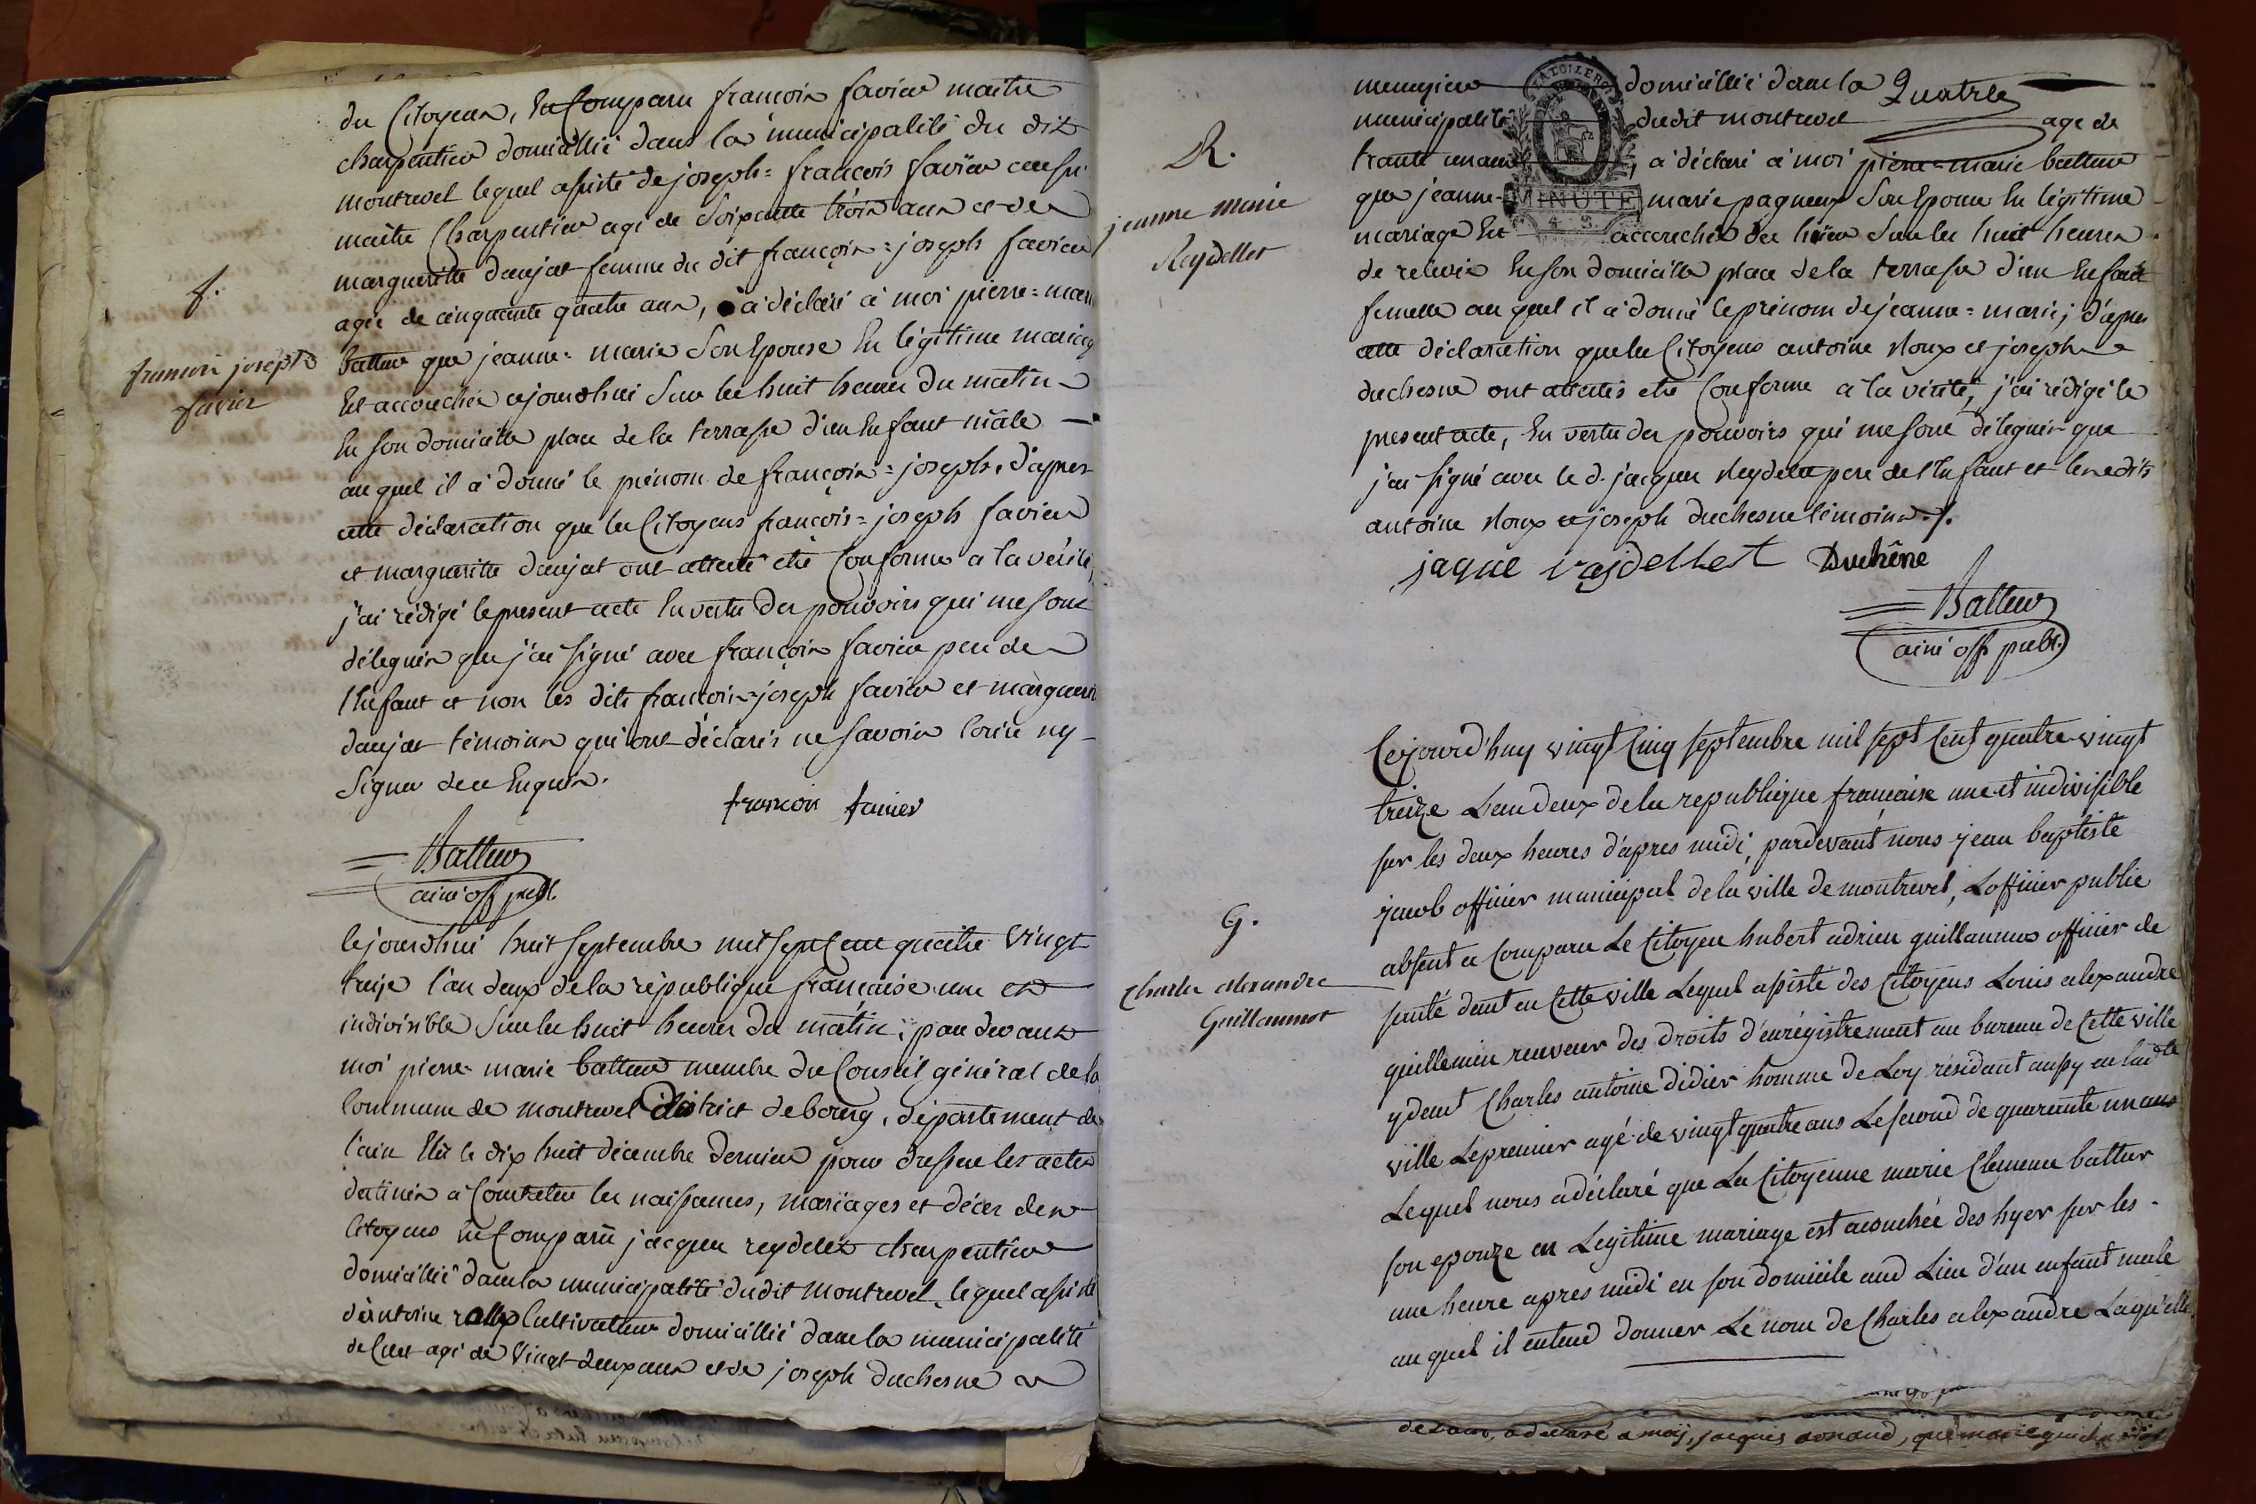 du Citoyens, Est Comparu francois favier maitre
charpentier domicillié dans la municipalité du dit
montrevel lequel assisté de joseph = francois favier aussi
maitre Charpentier agé de soixante trois ans et de
marguerite daujat femme du dit françois = joseph favier
agée de cinquante quatre ans, à déclaré à moi pierre = marie
battur que jeanne = marie son Epouse En légitime mariage
Est accouchée cejourdhui sur les huit heures du matin
En son domicille place de la terrasse d'un Enfant mâle
au quel il à donné le prénom de françois = joseph, d'apres
cette déclaration que les Citoyens françois = joseph favier
et marguerite daujat ont attesté etre Conforme a la vérité,
j'ai rédigé le present acte En vertu des pouvoirs qui me sont
délegués que j'ai signé avec françois favier pere de
l'Enfant et non les dits francois = joseph favier et marguerite
daujat témoins qui ont déclarés ne savoir Ecrire ny
signer de ce Enquis.
francois favier
Battur
ainé off publ.
f.
francois joseph
favier
Cejourdhui huit septembre mil sept cent quatre vingt
treize l'an deux de la république francaise une et
indivisible sur les huit heures du matin, par devant
moi pierre = marie battur membre du Conseil général de la
Commune de montrevel district de bourg, département de
l'ain Elu le dix huit décembre dernier pour dresser les actes
destinés à Constater les naissances, mariages et décès des
Citoyens Est Comparu jacques reydelet charpentier
domicillié dans la municipalité dudit montrevel, lequel assisté
d'antoine roux Cultivateur domicillié dans la municipalité
de Cuet agé de vingt deux ans et de joseph duchesne
Quatre
R.
jeanne marie
Reydellet
menuisier domicillié dans la
municipalité dudit montrevel agé de
trante un ans, à déclaré à moi pierre = marie battur
que jeanne = marie pagneux son Epouse En légitime
MINUTE
mariage Est accouchée de hier sur les huit heures
de relevée En son domicille place de la terrasse d'un Enfant
femelle au quel il à donné le prénom de jeanne = marie; d'apres
cette déclaration que les Citoyens antoine Roux et joseph
duchesne ont attestés etre Conforme à la vérité, j'ai rédigé le
present acte, En vertu des pouvoirs qui me sont délegués que
j'ai signé avec le d. jacques Reydelet pere de l'Enfant et les dits
antoine Roux et joseph duchesne témoins ./.
jaque rajdellet Duchêne
Battur
ainé off publ.
G.
Charles alexandre
Guillaumot
Cejourd'huy vingt Cinq septembre mil sept Cent quatre vingt
treize L'an deux de la republique francaise une et indivisible
sur les deux heures d'apres midi, pardevant nous jean baptiste
jacob officier municipal de la ville de montrevel, L'officier public
absent a Comparu Le Citoyen hubert adrien guillaumot officier de
santé demt en Cette ville Lequel assisté des Citoyens Louis alexandre
guillemin receveur des droits d'enrégistrement au bureau de Cette ville
y demt Charles antoine didier homme de Loy résidant aussy en ladte
ville Le premier agé de vingt quatre ans Le second de quarente un ans
Lequel nous a déclaré que La Citoyenne marie Clemence battur
son epouze en Legitime mariage est acouchée des hyer sur les
une heure apres midi en son domicile aud Lieu d'un enfant male
au quel il entend donner Le nom de Charles alexandre Laquelle
a déclaré a moy, jacques